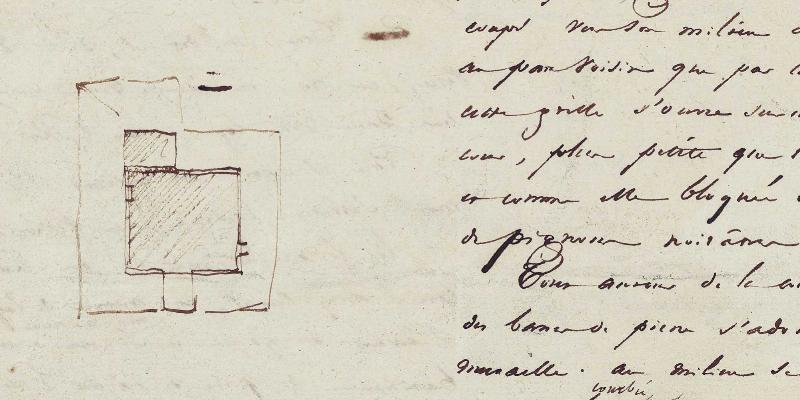 coupé vers son milieu
au pan voisin que par l
cette grille s'ouvre sur
cour, plus petite que
et comme elle bloquée
de pignons noirâtres
Tout autour de la
des bancs de pierre s'ado
muraille. au milieu
courbé,